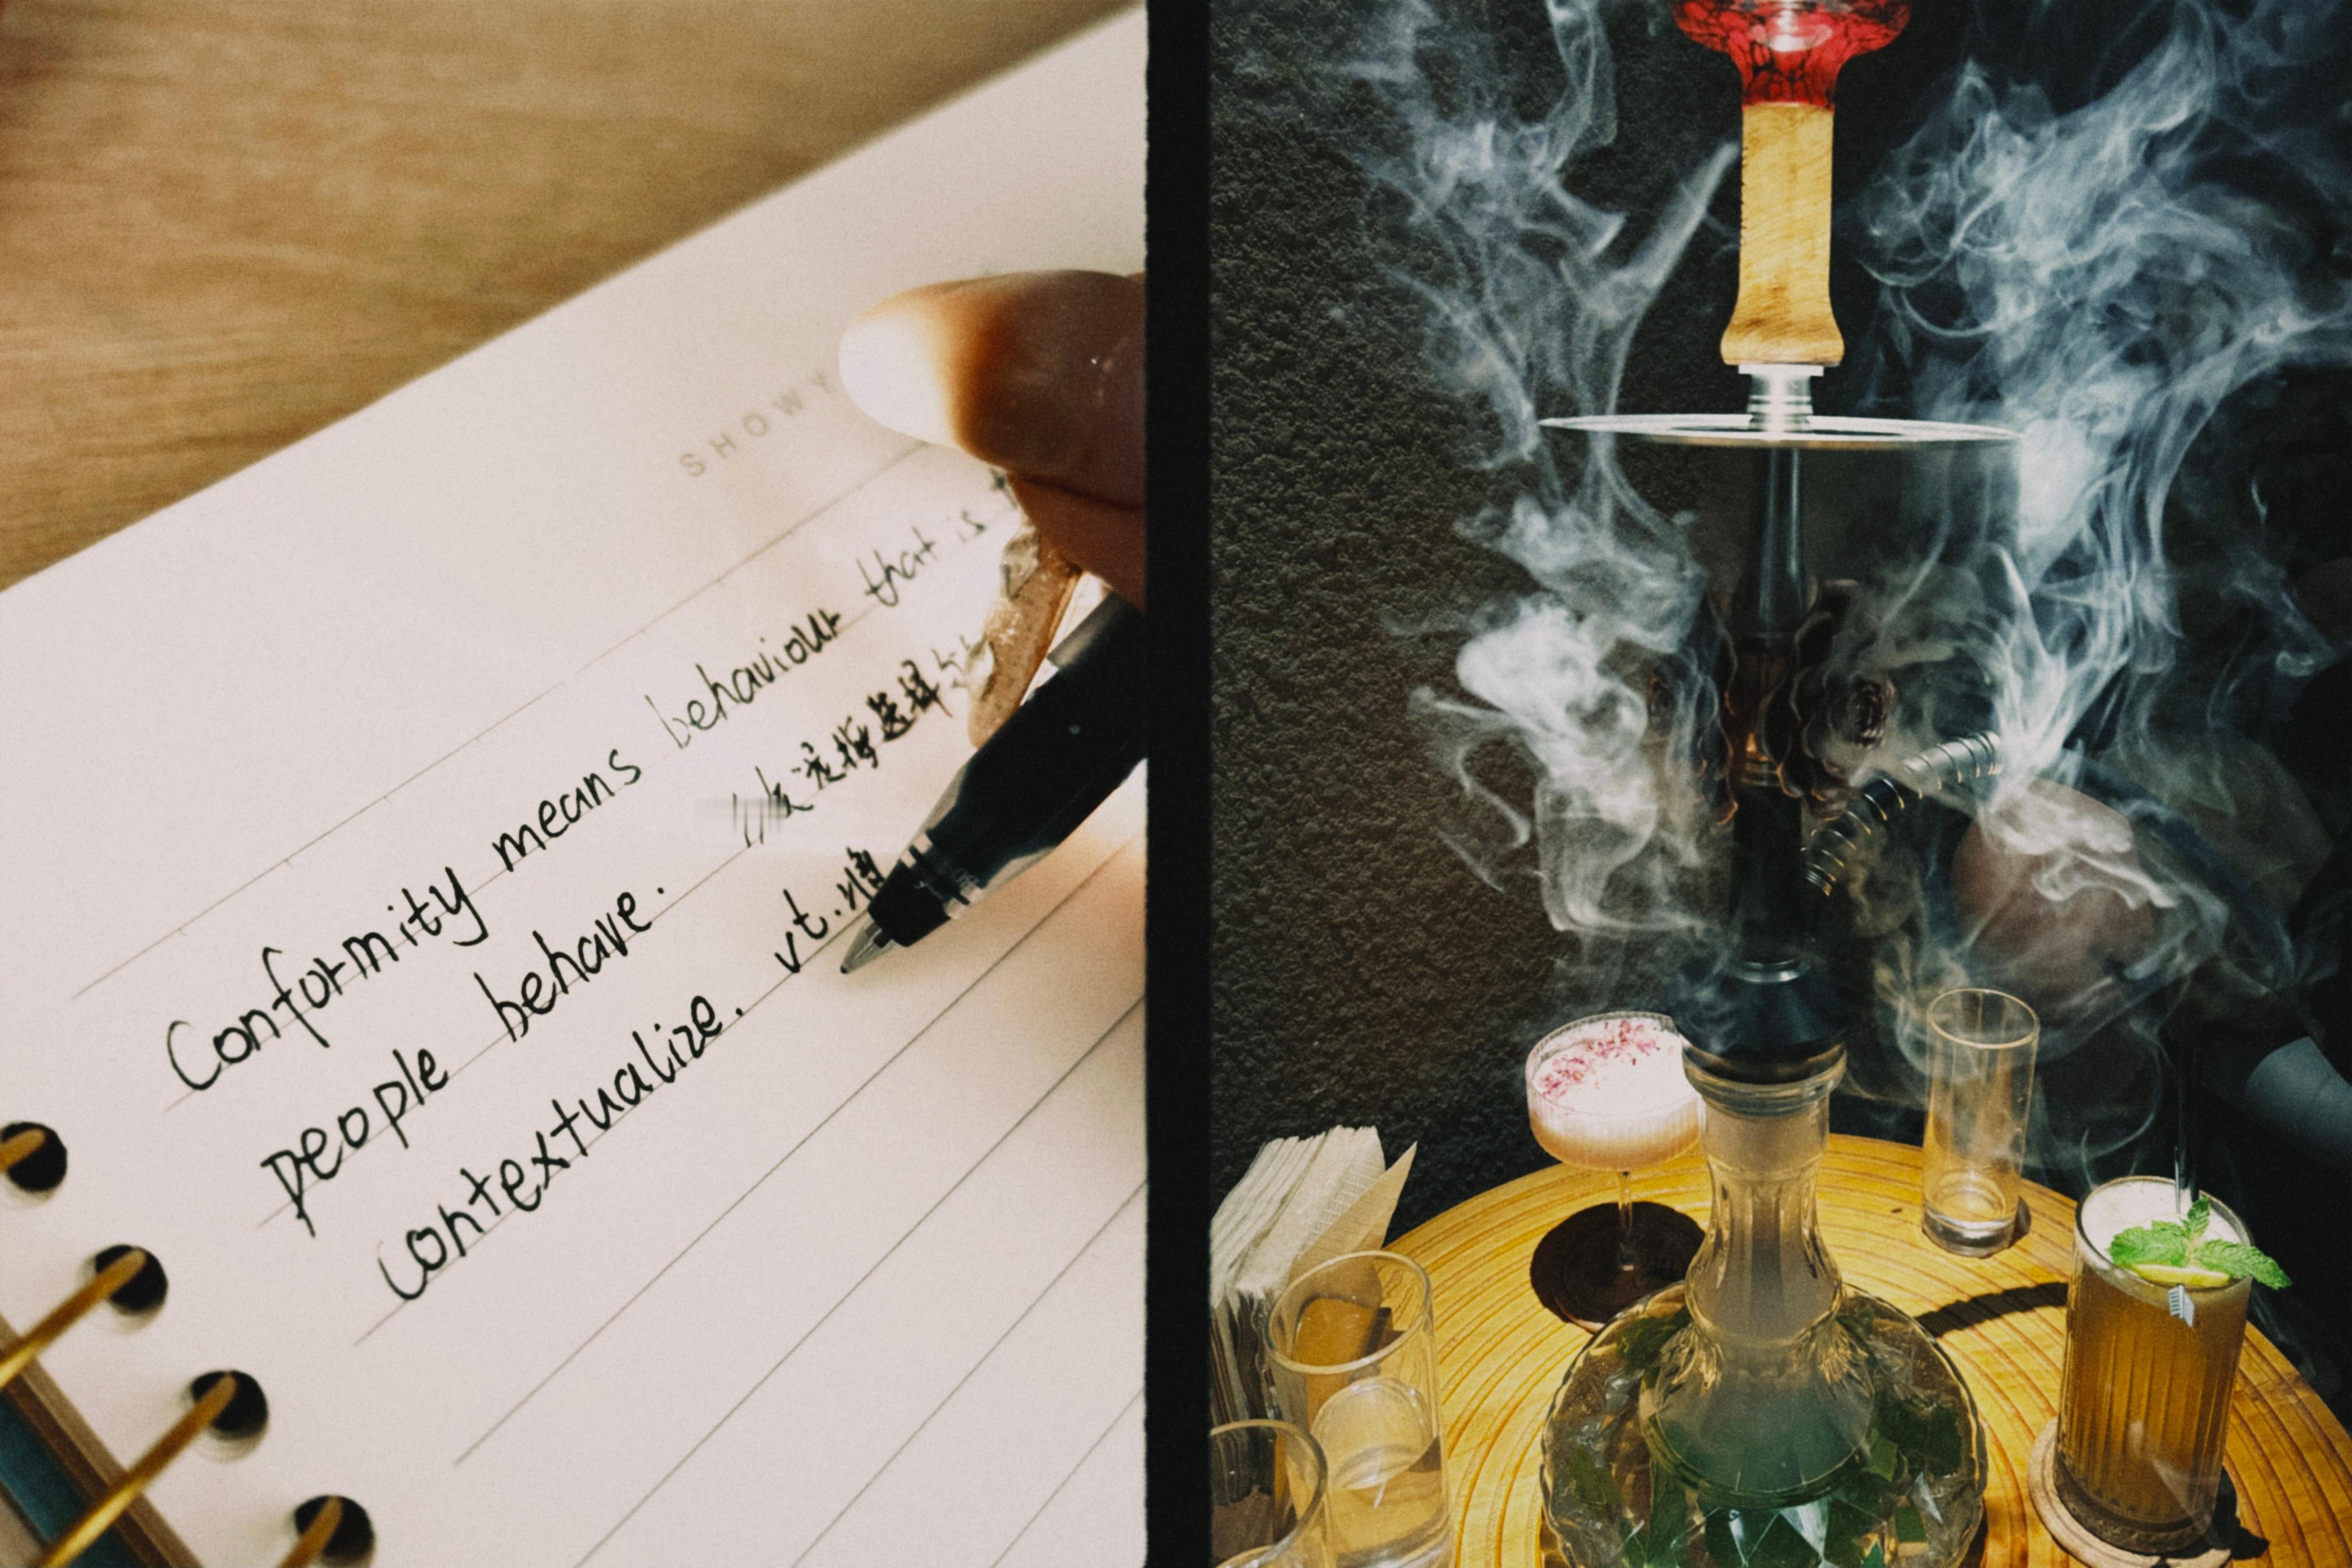 SHOWY
Conformity means behaviour that is
people behave.
contextualize. vt.